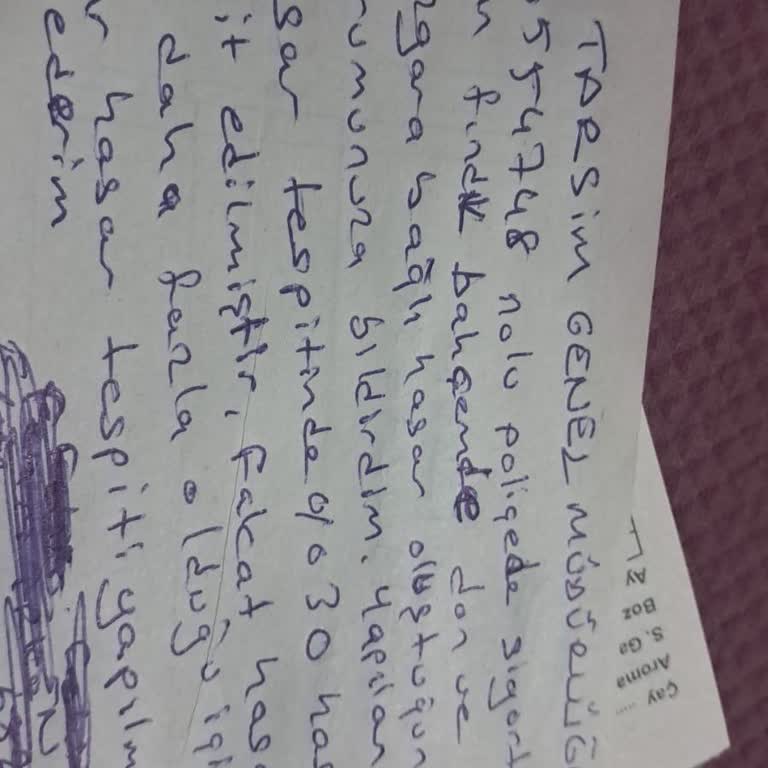 TARSİM GENEL MÜDÜRLÜĞ
554748 nolu poliçede sigort
fındık bahçemde don ve
bağlı hasar oluştuğun
bildirdim. Yapılan
tespitinde %30 ha
it edilmiştir. Fakat has
daha fazla olduğu içi
hasar tespiti yapılm
ederim
Çay
Aroma
S. Ga
Boz
AY